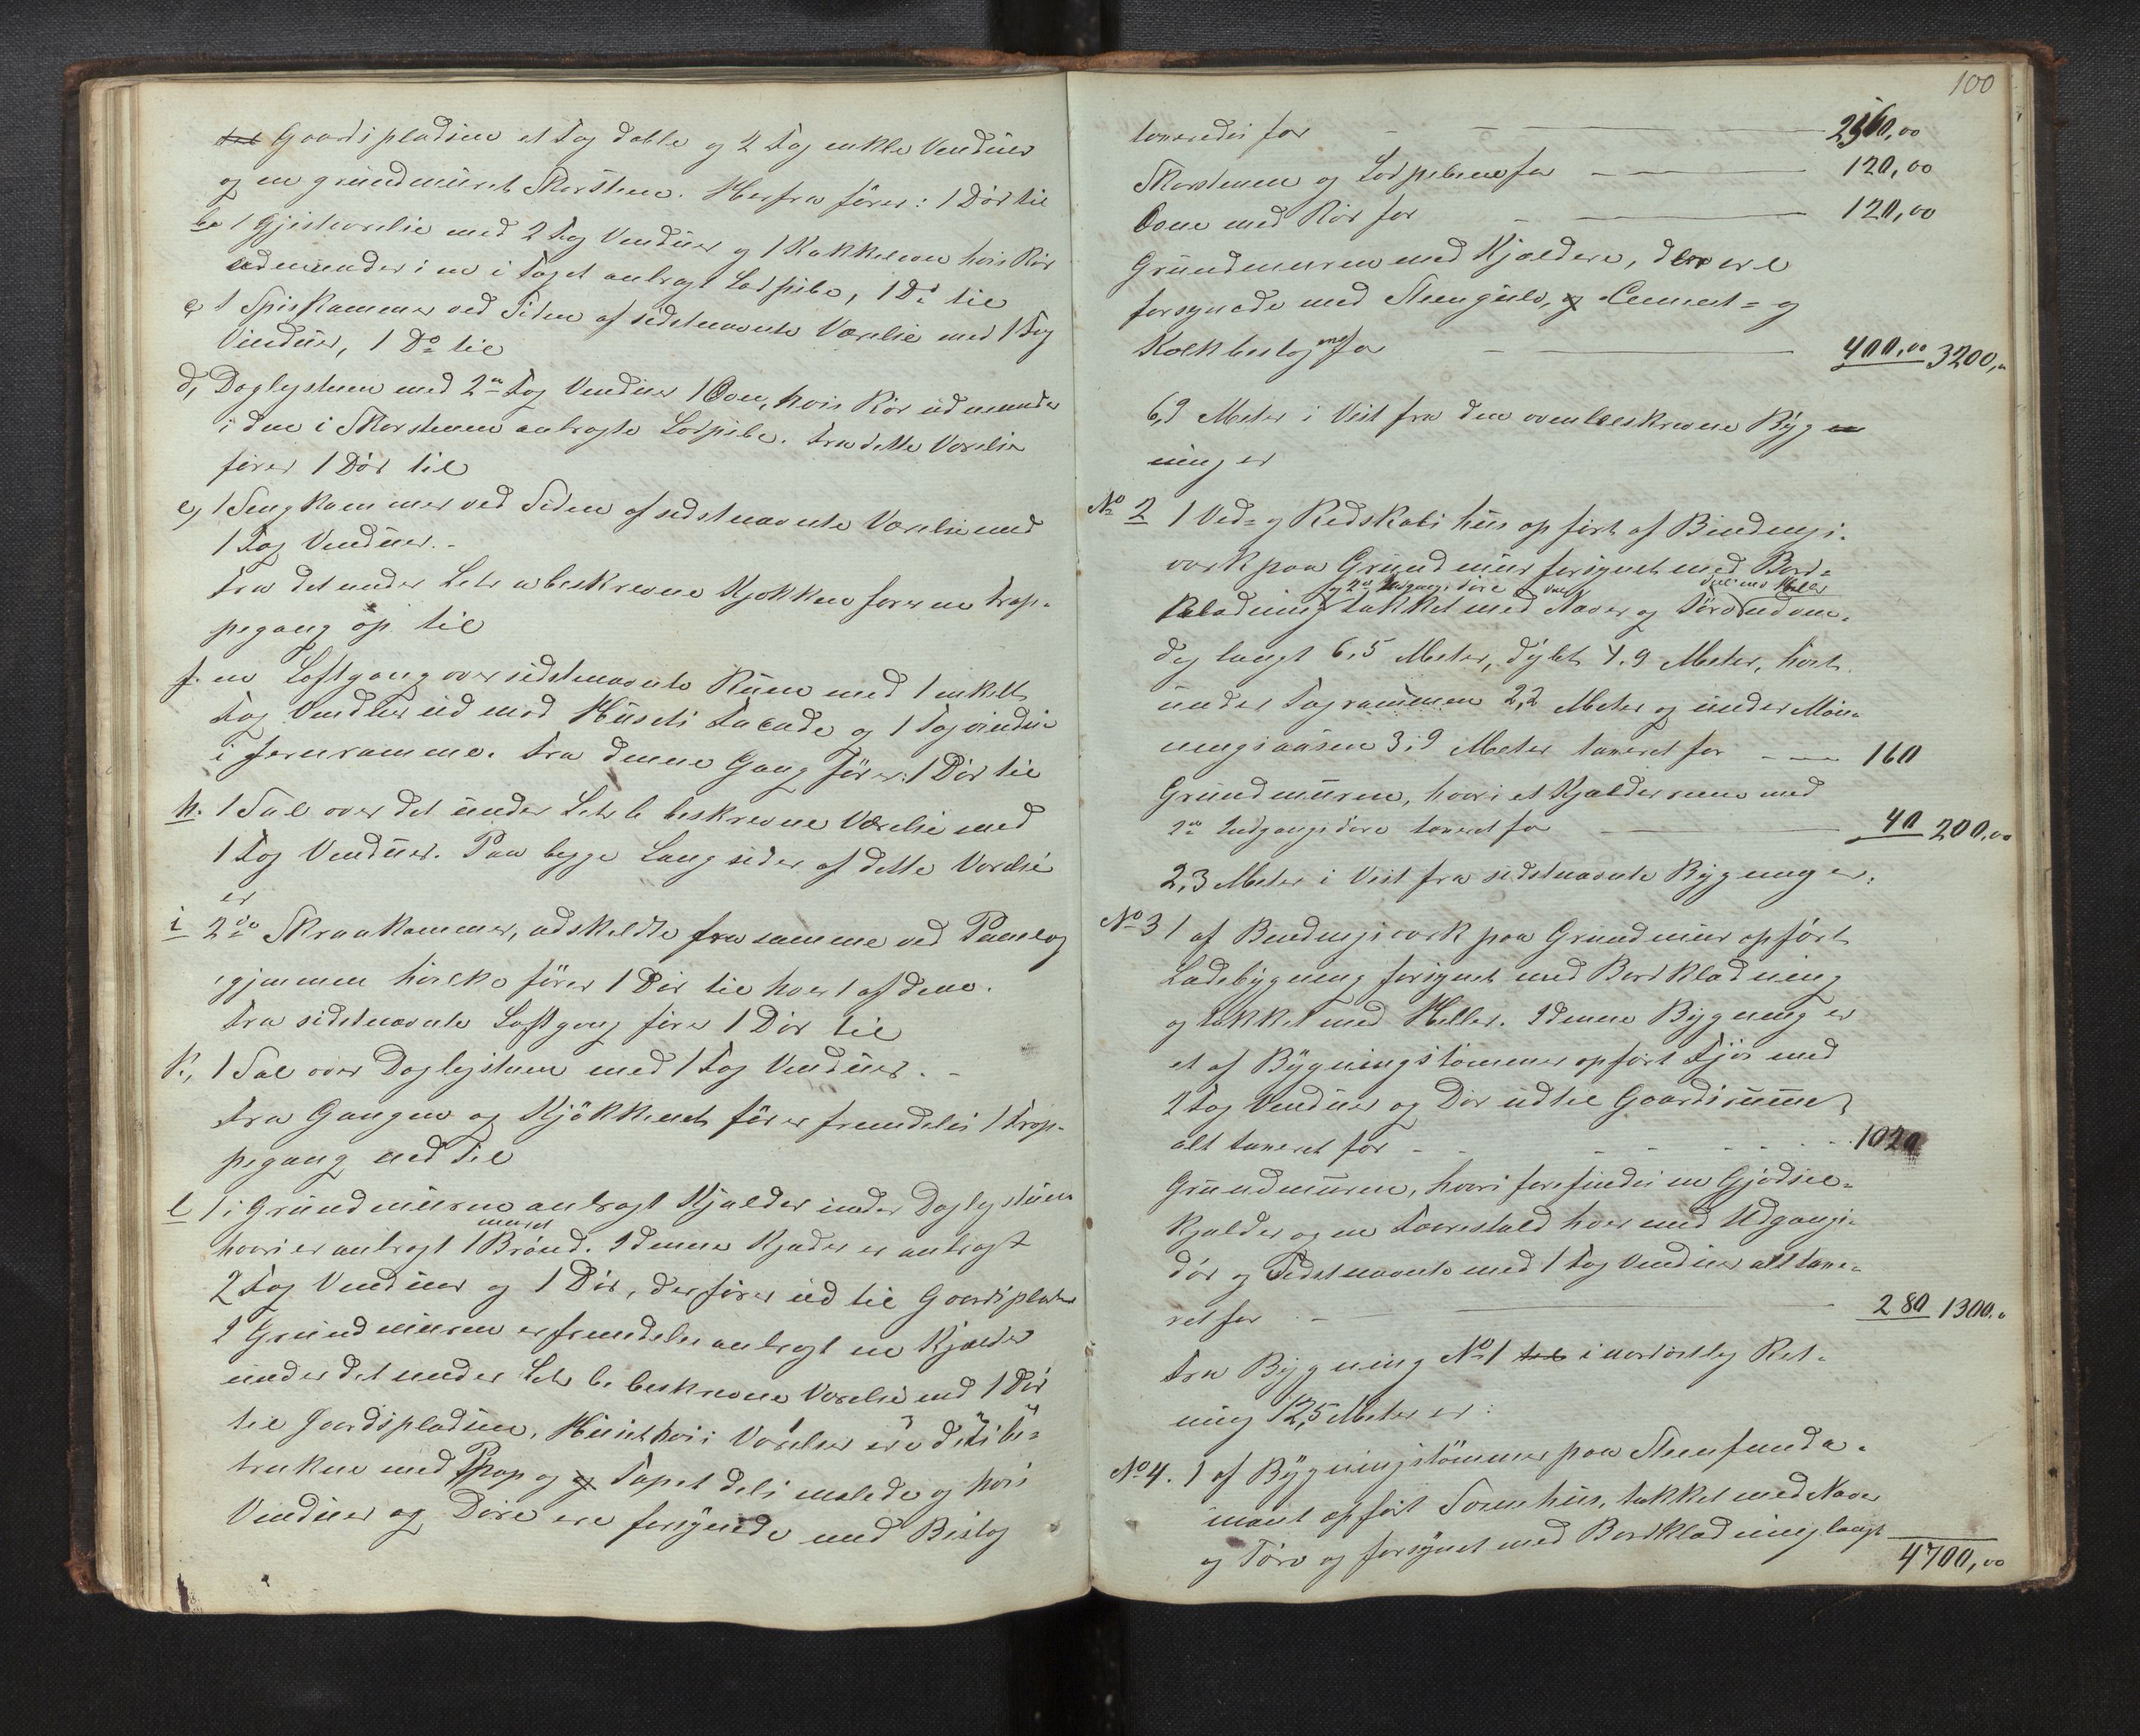 til Gaardspladsen et Fag doble og 2 Fag enkle Vinduer
og en grundmuret Skorsteen. Herfra fører: 1 Dør til
b. 1 Gjesteværelse med 2 Fag Vinduer og 1 Kakkelovn hvis Rør
udmunder i en i Taget anbragt Lodpibe, 1 Do til
c, 1 Spiskammer ved Siden af sidstnævnte Værelse med 1 Fag
Vinduer, 1 Do til
d, Dagligstuen med 2de Fag Vinduer 1 Ovn, hvis Rør udmunder
i den i Skorstenen anbragte Lodpibe. Fra dette Værelse
fører 1 Dør til
e, 1 Sengkammer ved Siden af sidstnævnte Værelse med
1 Fag Vinduer. -
Fra det under Litr a beskrevne Kjøkken fører en Trap-
pegang op til
f. en Loftgang over sidstnævnte Rum med 1 enkelt
Fag Vinduer ud mod Husets Facade og 1 Tagvindu
i Jernramme. Fra denne Gang fører: 1 Dør til
h. 1 Sal over det under Litr b beskrevne Værelse med
1 Fag Vinduer. Paa begge Langsider af dette Værelse
er
i 2de Skraakammer, adskildte fra samme ved Panelog
igjennem hvilke fører 1 Dør til hver 1 af dem.
Fra sidstnævnte Loftgang fører 1 Dør til
k., 1 Sal over Dagligstuen med 1 Fag Vinduer. -
Fra Gangen og Kjøkkenet fører fremdeles 1 Trap-
pegang ned til
l 1 i Grundmuren anbragt Kjælder under Dagligstuen
hvori er anbragt 1 muret Brønd. I denne Kjælder er anbragt
2 Fag Vinduer og 1 Dør, der fører ud til Gaardspladsen
I Grundmuren er fremdeles anbragt en Kjælder
under det under Litr b. beskrevne Værelse med 1 Dør
til Gaardspladsen. Huset hvis Værelser ere dels be-
trukne med Pap og og Tapet dels malede og hvis
Vinduer og Døre ere forsynede med Beslag
100
taxeredes for - - - 2560,00
Skorstenen og Lodpiberne for - - - 120,00
Ovne med Rør for - - 120,00
Grundmuren med Kjældere, der ere
forsynede med Steengulv, og Cement- og
Kalkbeslag med for - - 400,00 3200,00
6,9 Meter i Vest fra den ovenbeskrevne Byg
ning er
No 2 1 Ved- og Redskabshus opført af Bindings-
værk paa Grundmur forsynet med Bord-
og 2de Indgangsdøre dels med Heller
klædning takket med Næver og Tørv udven-
dig langt 6,5 Meter, dybt 4.9 Meter, høit
under Tagrammen 2,2 Meter og under Møn-
ningsaasen 3,9 Meter taxeret for - - - 160
Grundmuren, hvori et Kjælderrum med
2de Indgangsdøre taxeret for - - 40 200,00
2,3 Meter i Vest fra sidstnævnte Bygning er:
No 3 1 af Bindingsværk paa Grundmur opført
Ladebygning forsynet med Bordklædning
og takket med Heller. I denne Bygning er
et af Bygningstømmer opført Fjøs med
2 Fag Vinduer og Dør ud til Gaardsrummet
alt taxeret for - - - - - - 1020
Grundmuren, hvori forefindes en Gjødsel-
kjælder og en Faarestald hver med Udgangs-
dør og Sidstnævnte med 1 Fag Vinduer alt taxe-
ret for - - - 280 1300,0
Fra Bygning No 1 til i nordøstlig Ret-
ning 12,5 Meter er:
No 4. 1 af Bygningstømmer paa Steenfunda-
ment opført , takket med Næver
og Tørv og forsynet med Bordklædning langt
4700,00